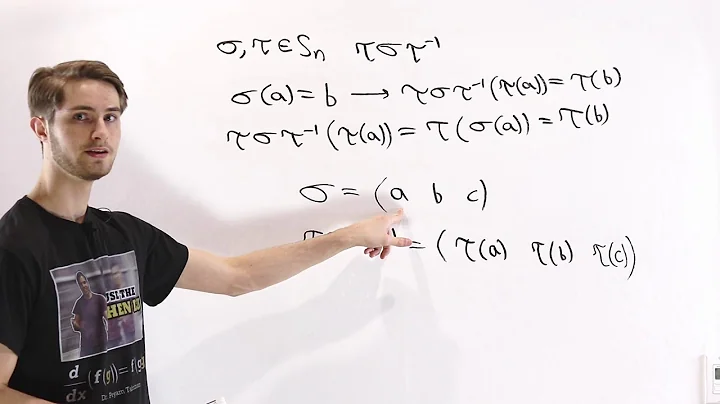 σ, τ ∈ Sₙ τστ⁻¹
σ(a) = b → τστ⁻¹(τ(a)) = τ(b)
τστ⁻¹(τ(a)) = τ(σ(a)) = τ(b)
σ = (a b c)
= (τ(a) τ(b) τ(c))
USE THE
d/dx (f(g)) = f(g